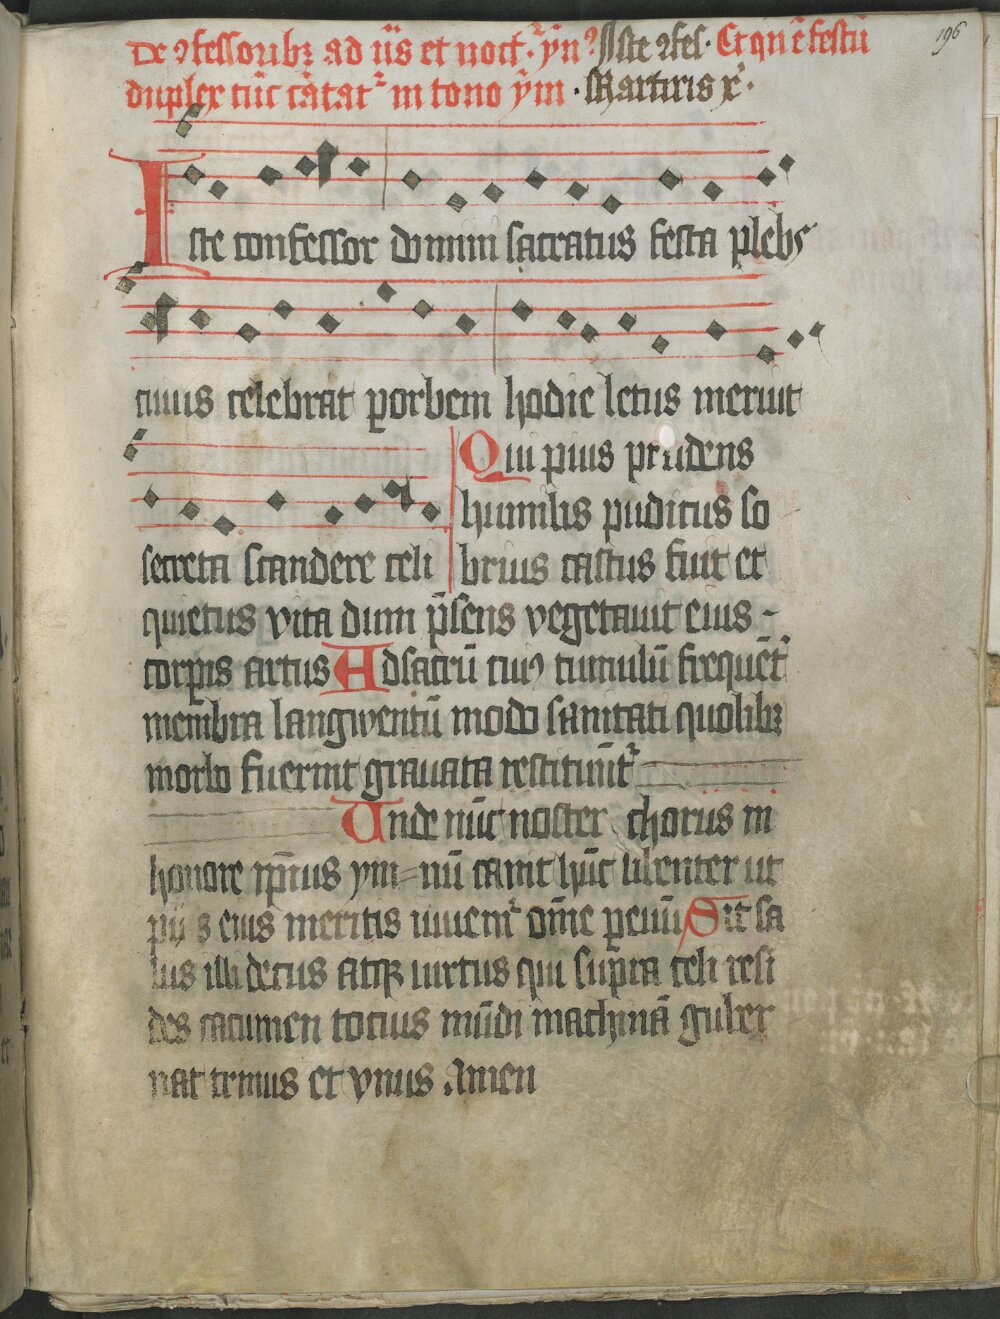 196
De ꝯfessoribꝫ ad ūs et noct. ẏmꝰ Iste ꝯfes. Et qn̄ ē festū
duplex tūc cātat᷑ in tono ẏm . Martiris x̄.
Iste confessor domini sacratus festa plebs
cuius celebrat ꝑ orbem hodie letus meruit
secreta scandere celi
Qui pius prudens
humilis pudicus so
brius castus fuit et
quietus vita dum p̄sens vegetauit eius -
corꝑis artus Ad sacrū cuiꝰ tumulū frequēt᷑
membra langwentū modo sanitati quolibꝫ
morbo fuerint grauata restituūt᷑
Unde nūc noster chorus in
honore ip̄ius ym=nū canit hūc libenter ut
pijs eius meritis iuuem᷑ om̄e ꝑ euū Sit sa
lus illi decus atqꝫ uirtus qui supra celi resi
des cacumen totius mūdi machinā guber
nat trinus et vnus Amen